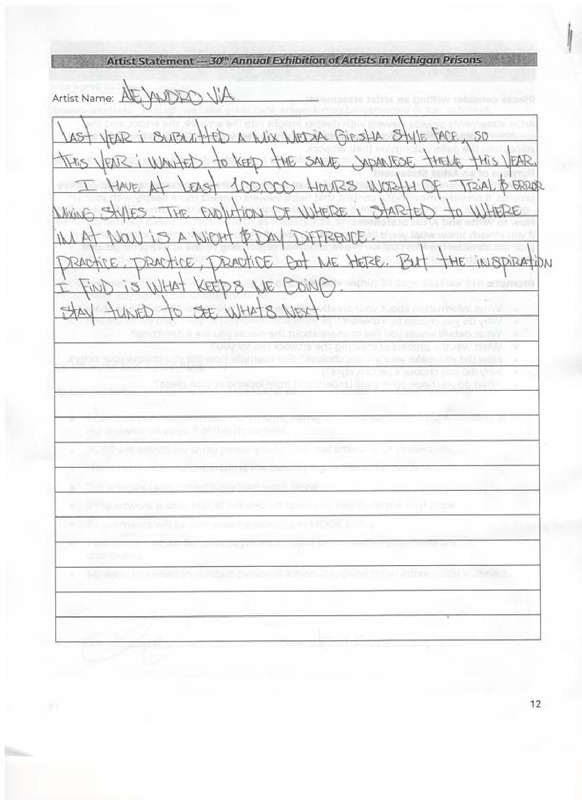 Artist Statement — 30th Annual Exhibition of Artists in Michigan Prisons
Artist Name: ALEJANDRO VIA
LAST YEAR i SUBMITTED A MIX MEDIA GIESHA STYLE FACE, SO
THIS YEAR i WANTED TO KEEP THE SAME JAPANESE THEME THIS YEAR.
I HAVE AT LEAST 100,000 HOURS WORTH OF TRIAL & ERROR
MIXING STYLES. THE EVOLUTION OF WHERE I STARTED TO WHERE
IM AT NOW IS A NIGHT & DAY DIFFRENCE.
PRACTICE, PRACTICE, PRACTICE GOT ME HERE. BUT THE INSPIRATION
I FIND IS WHAT KEEPS ME GOING.
STAY TUNED TO SEE WHATS NEXT.
12